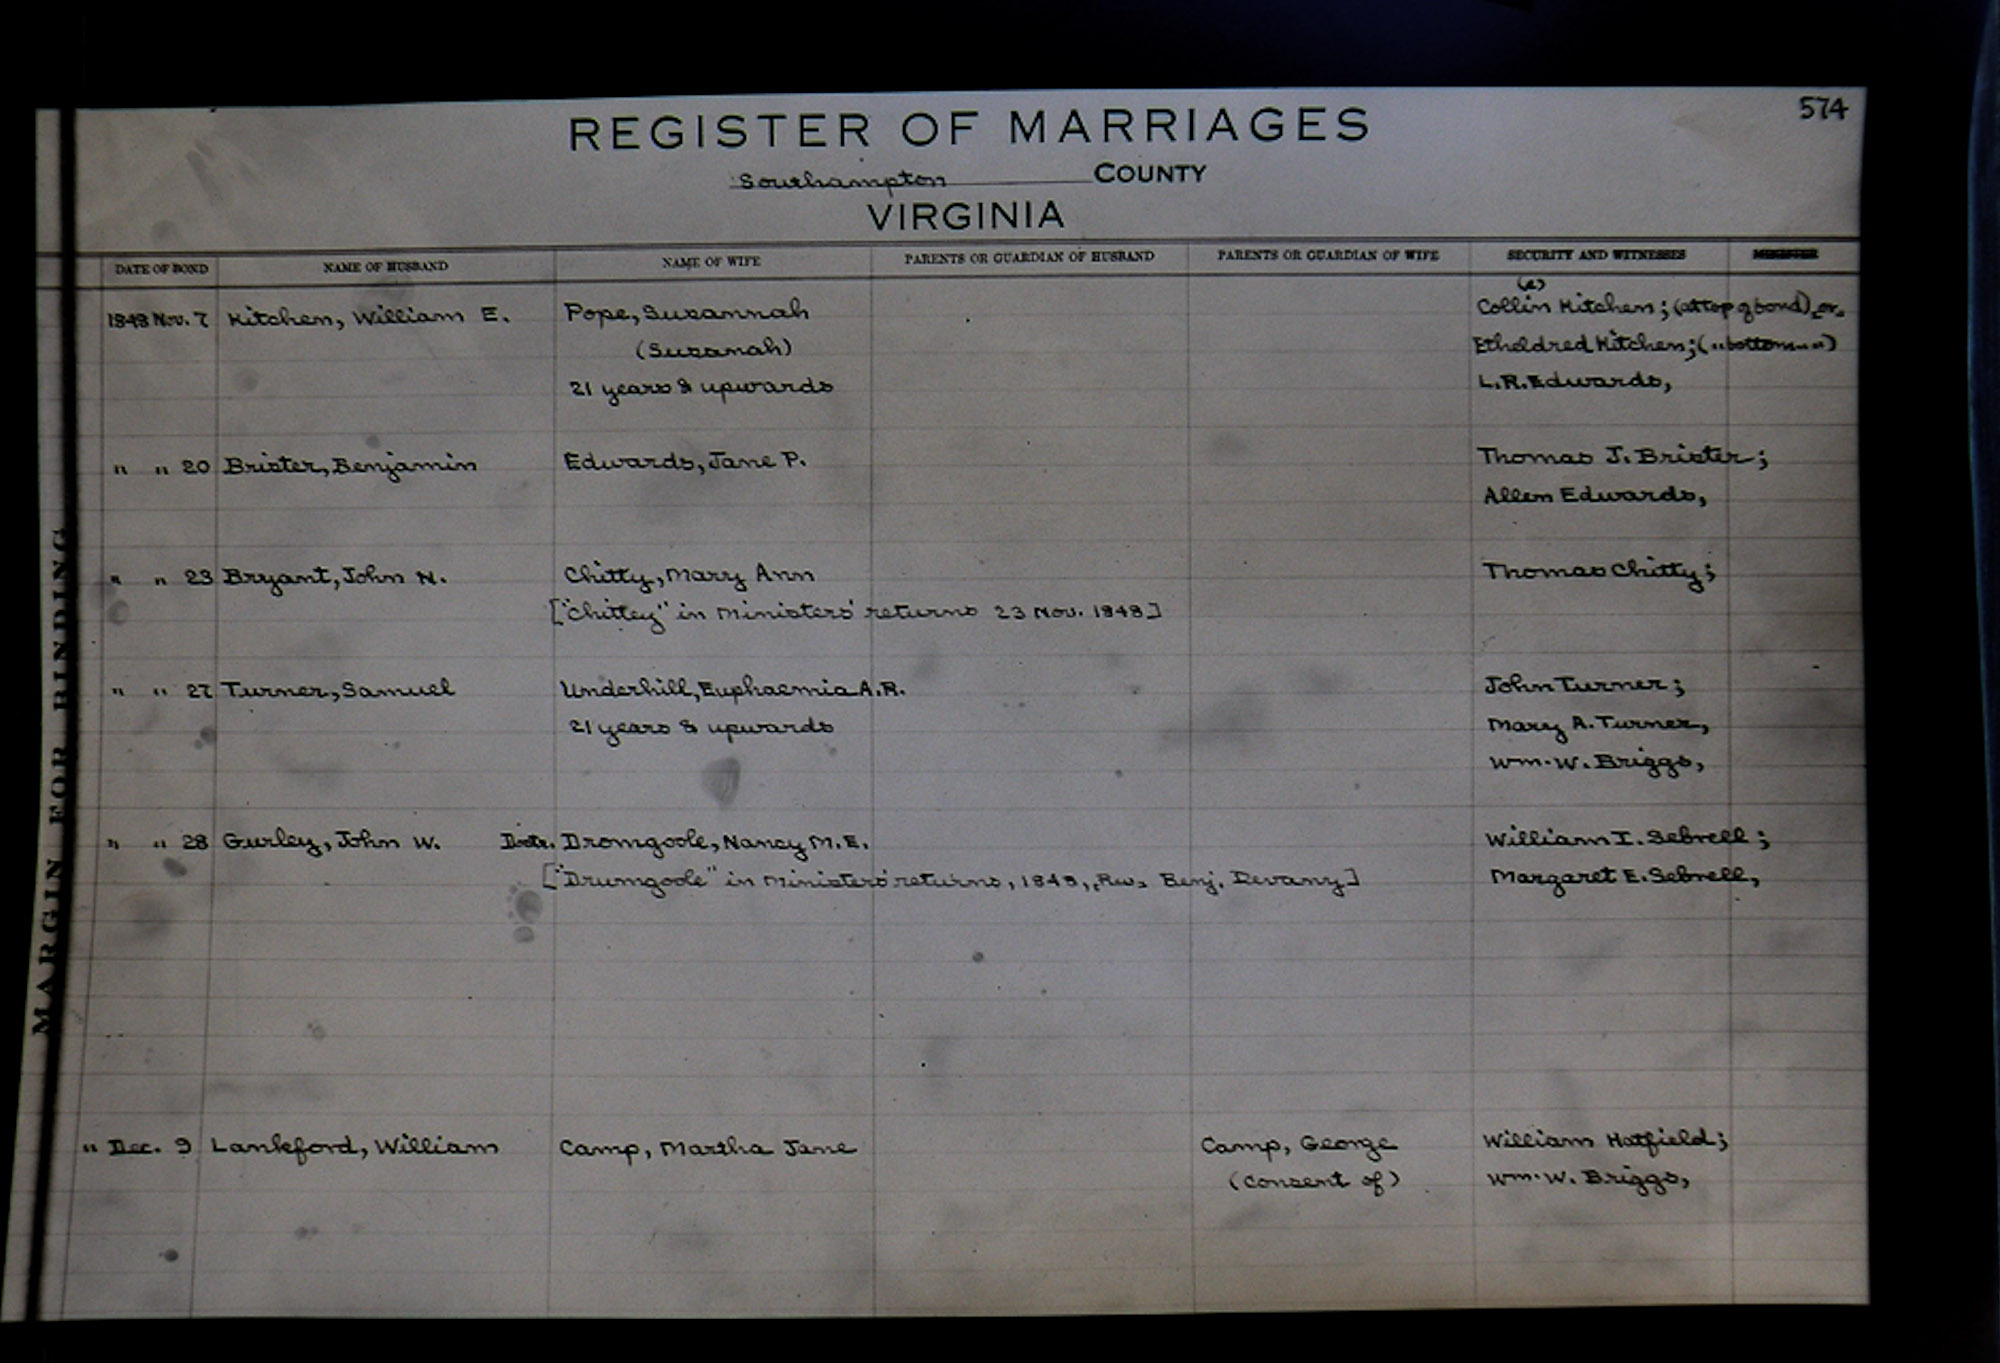 574
REGISTER OF MARRIAGES
Southampton COUNTY
VIRGINIA
DATE OF BOND NAME OF HUSBAND NAME OF WIFE PARENTS OR GUARDIAN OF HUSBAND PARENTS OR GUARDIAN OF WIFE SECURITY AND WITNESSES MINISTER
(e)
1848 Nov. 7 Kitchen, William E. Pope, Susannah Collin Kitchen; (at top of bond) or
(Susanah) Etheldred Kitchen; (" bottom " ")
21 years & upwards L.R. Edwards,
" " 20 Brister, Benjamin Edwards, Jane P. Thomas J. Brister;
Allen Edwards,
" " 23 Bryant, John N. Chitty, Mary Ann Thomas Chitty;
["Chittey" in Ministers' returns 23 Nov. 1848]
" " 27 Turner, Samuel Underhill, Euphaemia A.R. John Turner;
21 years & upwards Mary A. Turner,
Wm. W. Briggs,
" " 28 Gurley, John W. Doctr. Dromgoole, Nancy M.E. William I. Sebrell;
["Drumgoole" in Ministers' returns, 1848, Rev. Benj. Devany] Margaret E. Sebrell,
" Dec. 9 Lankford, William Camp, Martha Jane Camp, George William Hatfield;
(consent of) Wm. W. Briggs,
MARGIN FOR BINDING